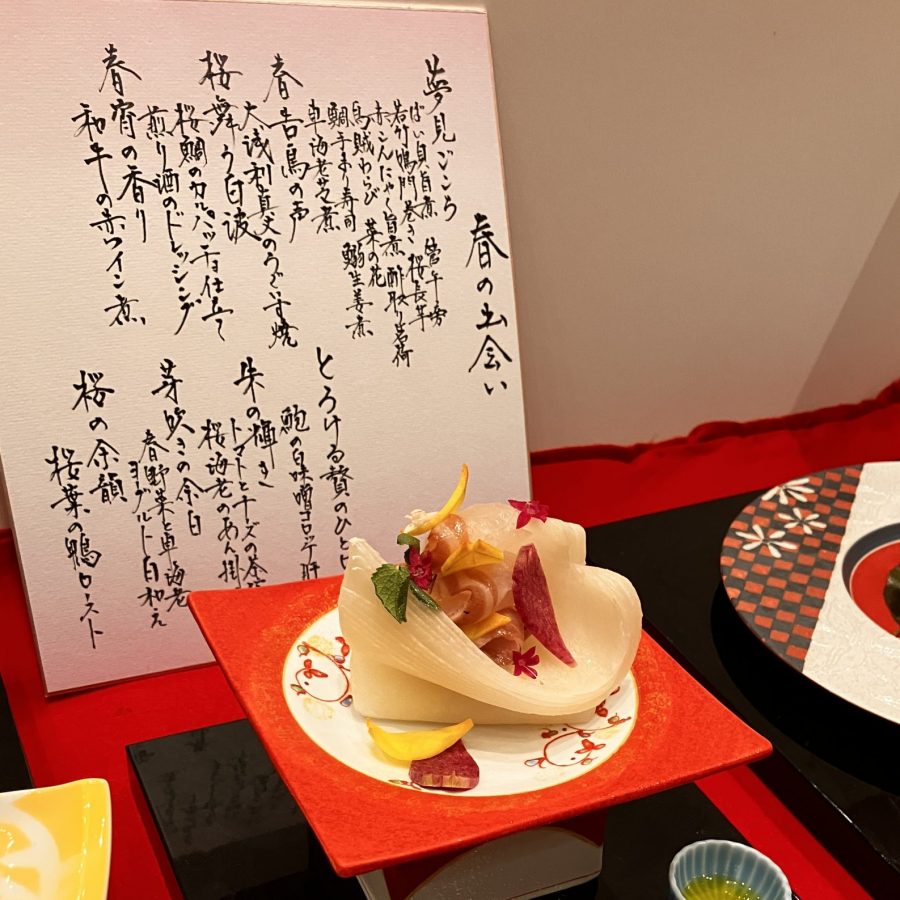 春の出会い
夢見ごころ
ばい貝旨煮 管牛蒡
若竹鳴門巻き 桜長芋
赤こんにゃく旨煮 酢取り茗荷
烏賊わらび 菜の花
鯛手まり寿司 鰯生姜煮
車海老芝煮
春告鳥の声
大浅利真丈のうぐいす焼
桜舞う白波
桜鯛のカルパッチョ仕立て
煎り酒のドレッシング
春宵の香り
和牛の赤ワイン煮
とろける贅のひと
鮑の白味噌コロッケ肝
朱の輝き
トマトとチーズの茶
桜海老のあん掛
芽吹きの余白
春野菜と車海老
ヨーグルト白和え
桜の余韻
桜葉の鴨ロースト